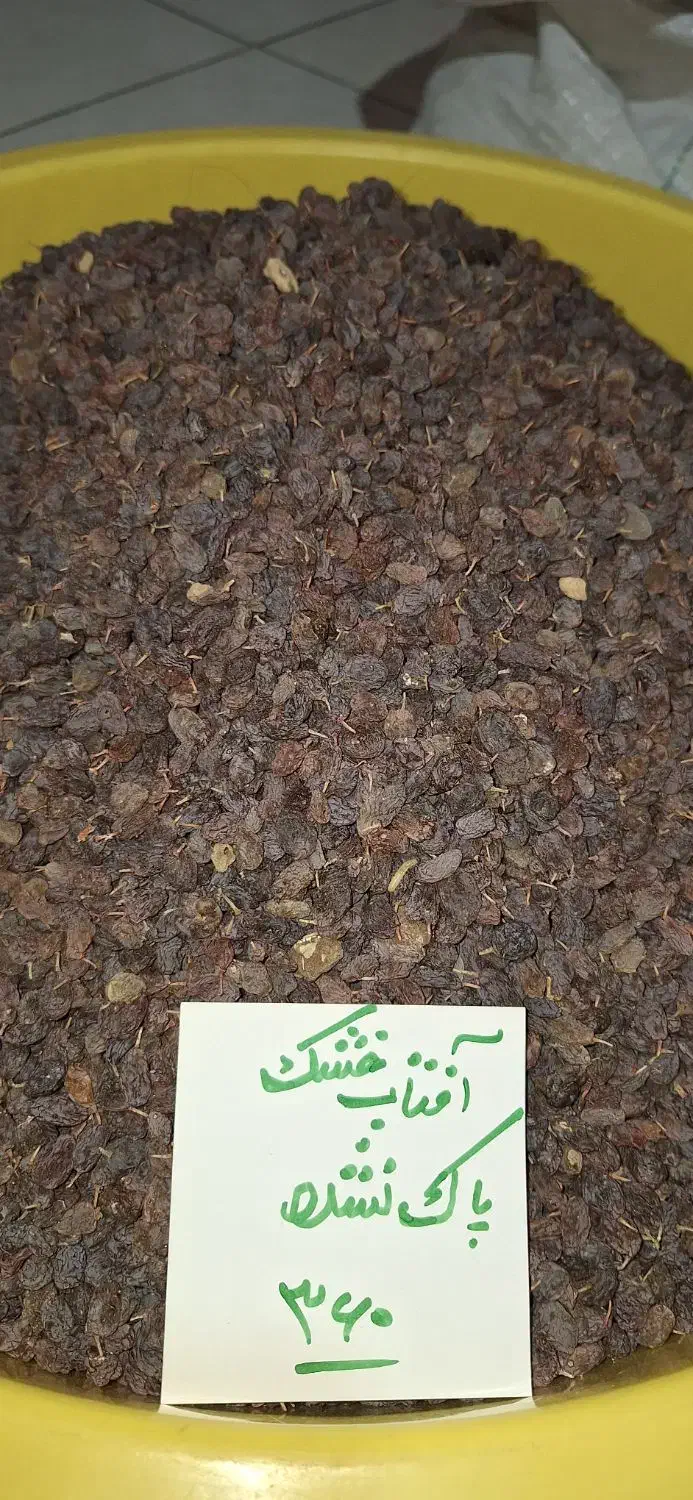 آفتاب خشک
پاک نشده
۳۶۰